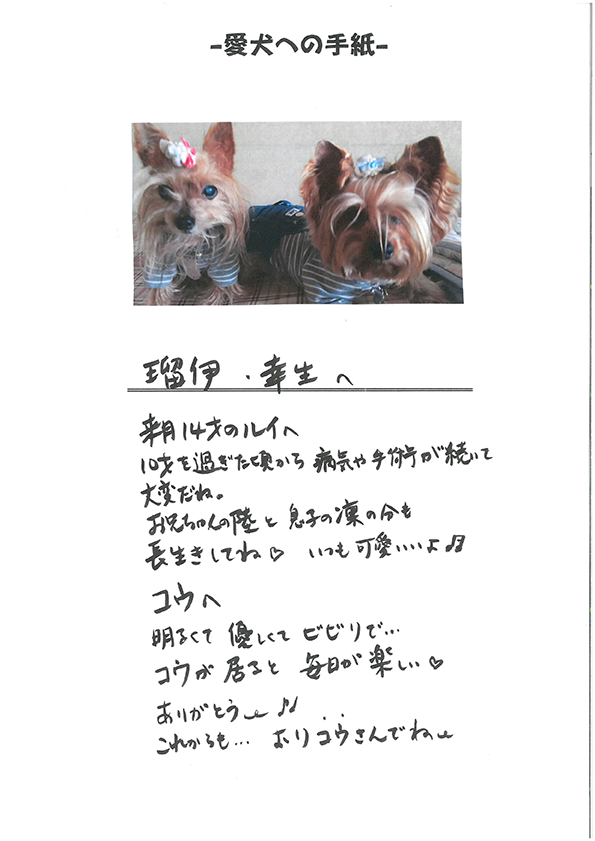 -愛犬への手紙-
瑠伊・幸生へ
来月14才のルイへ
10才を過ぎた頃から 病気や手術が続いて
大変だね。
お兄ちゃんの陸と 息子の凜の分も
長生きしてね♡ いつも可愛いいよ♪♫
コウへ
明るくて 優しくて ビビリで…
コウが居ると 毎日が楽しい♡
ありがとう ♪♪
これからも… おりコウさんでね